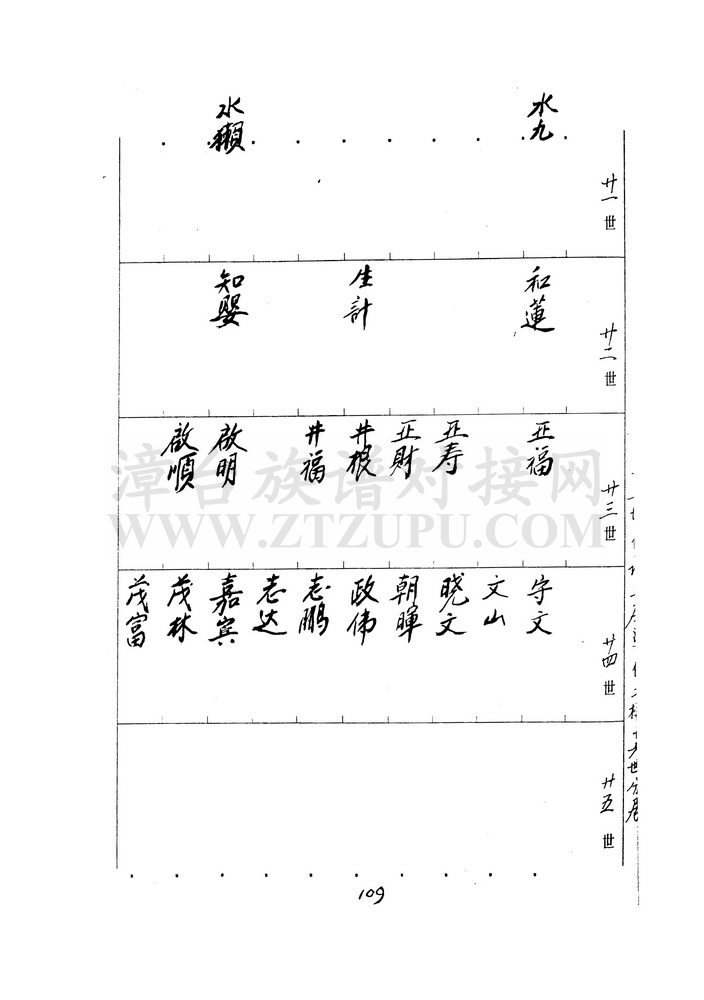 水九
水獺
廿一世
和蓮
生計
知嬰
廿二世
正福
正寿
正財
井根
井福
啟明
啟順
廿三世
守文
文山
晓文
朝暉
政伟
志鹏
志达
嘉宾
茂林
茂富
廿四世
廿五世
109
漳台族谱对接网
WWW.ZTZUPU.COM